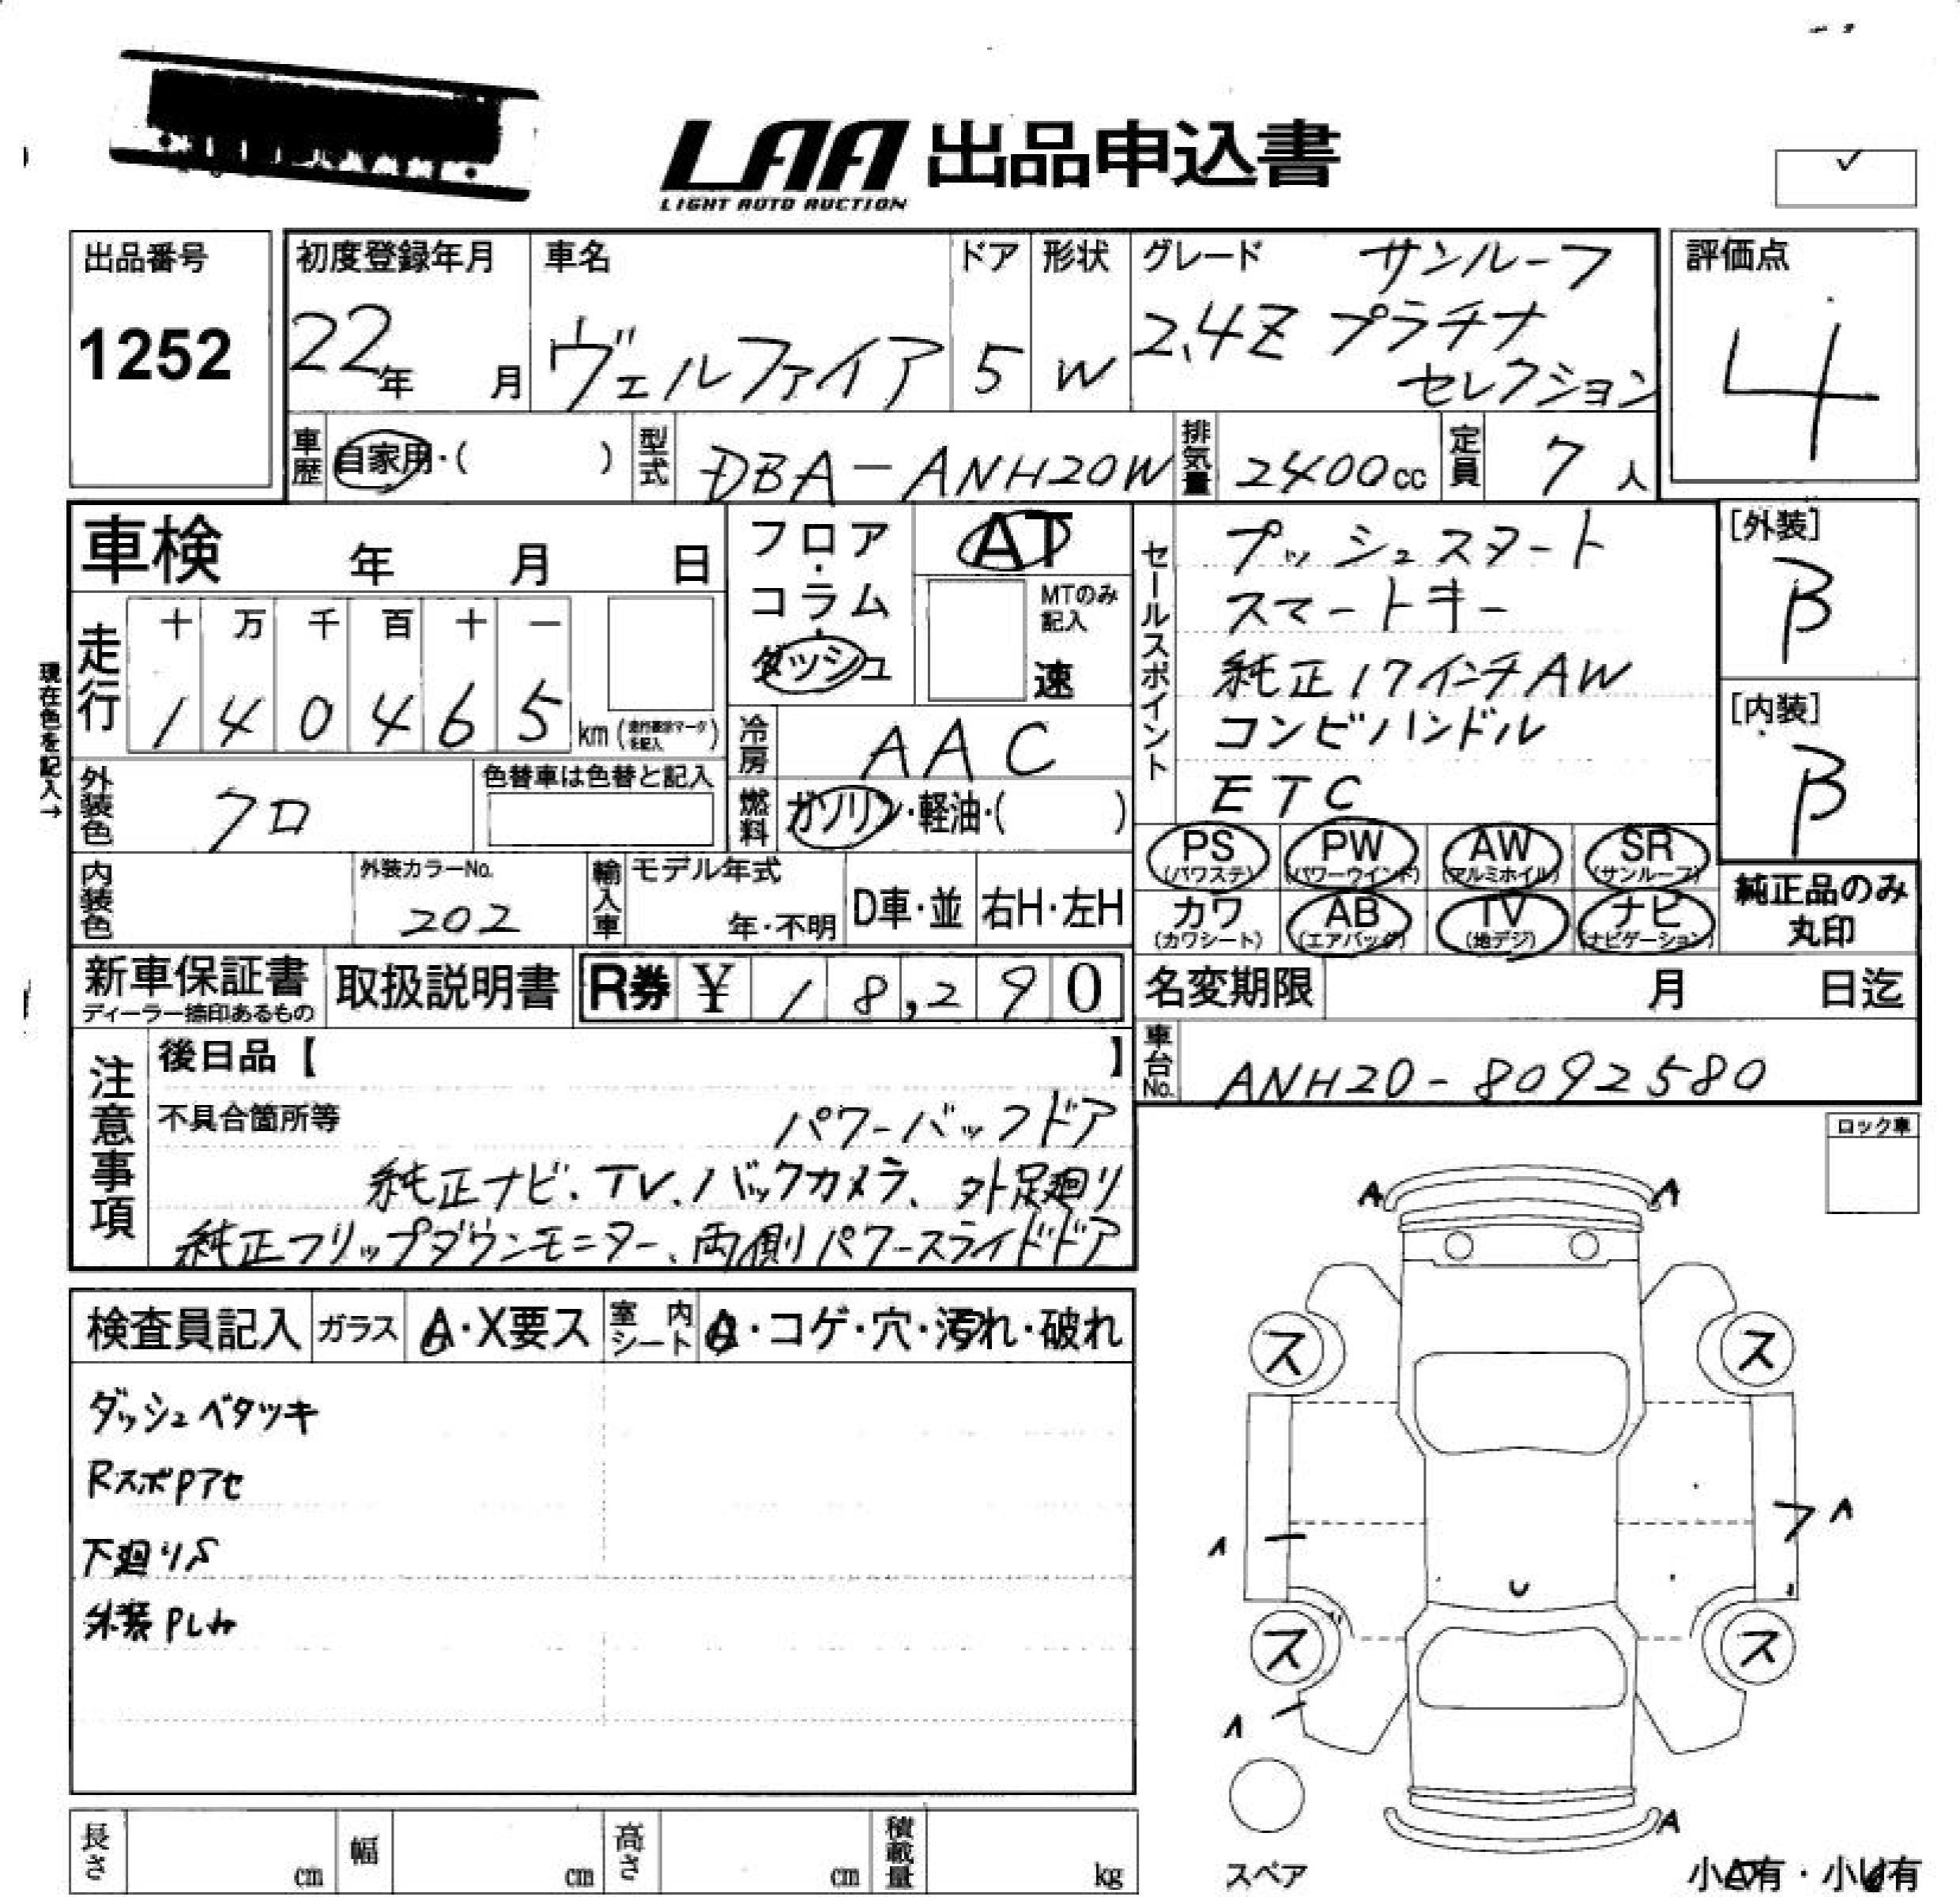 LAA 出品申込書
LIGHT AUTO AUCTION
✓
出品番号
1252
初度登録年月
22年 月
車名
ヴェルファイア
ドア
5
形状
W
グレード サンルーフ
2.4Z プラチナ
セレクション
評価点
4
車歴 自家用・( )
型式 DBA-ANH20W
排気量 2400cc
定員 7人
車検 年 月 日
フロア・
コラム・
ダッシュ
AT
MTのみ
記入
速
セールスポイント
プッシュスタート
スマートキー
純正17インチAW
コンビハンドル
ETC
[外装]
B
[内装]
B
現在色を記入→
走行
十 万 千 百 十 一
1 4 0 4 6 5 km
冷房 AAC
燃料 ガソリン・軽油・( )
外装色 クロ
色替車は色替と記入
内装色
外装カラーNo.
202
輸入車
モデル年式
年・不明
D車・並
右H・左H
PS
(パワステ)
PW
(パワーウインド)
AW
(アルミホイル)
SR
(サンルーフ)
カワ
(カワシート)
AB
(エアバッグ)
TV
(地デジ)
ナビ
(ナビゲーション)
純正品のみ
丸印
新車保証書
ディーラー捺印あるもの
取扱説明書
R券 ¥ 18,290
名変期限 月 日迄
車台No. ANH20-8092580
注意事項
後日品【 】
不具合箇所等 パワーバックドア
純正ナビ、TV、バックカメラ、外足廻り
純正フリップダウンモニター、両側パワースライドドア
ロック車
検査員記入 ガラス A・X要ス 室内シート ・コゲ・穴・汚れ・破れ
ダッシュベタツキ
RスポPアセ
下廻りS
外装P
A A
ス ス
A A
ス ス
A
A
スペア
小A有・小U有
長さ cm
幅 cm
高さ cm
積載量 kg